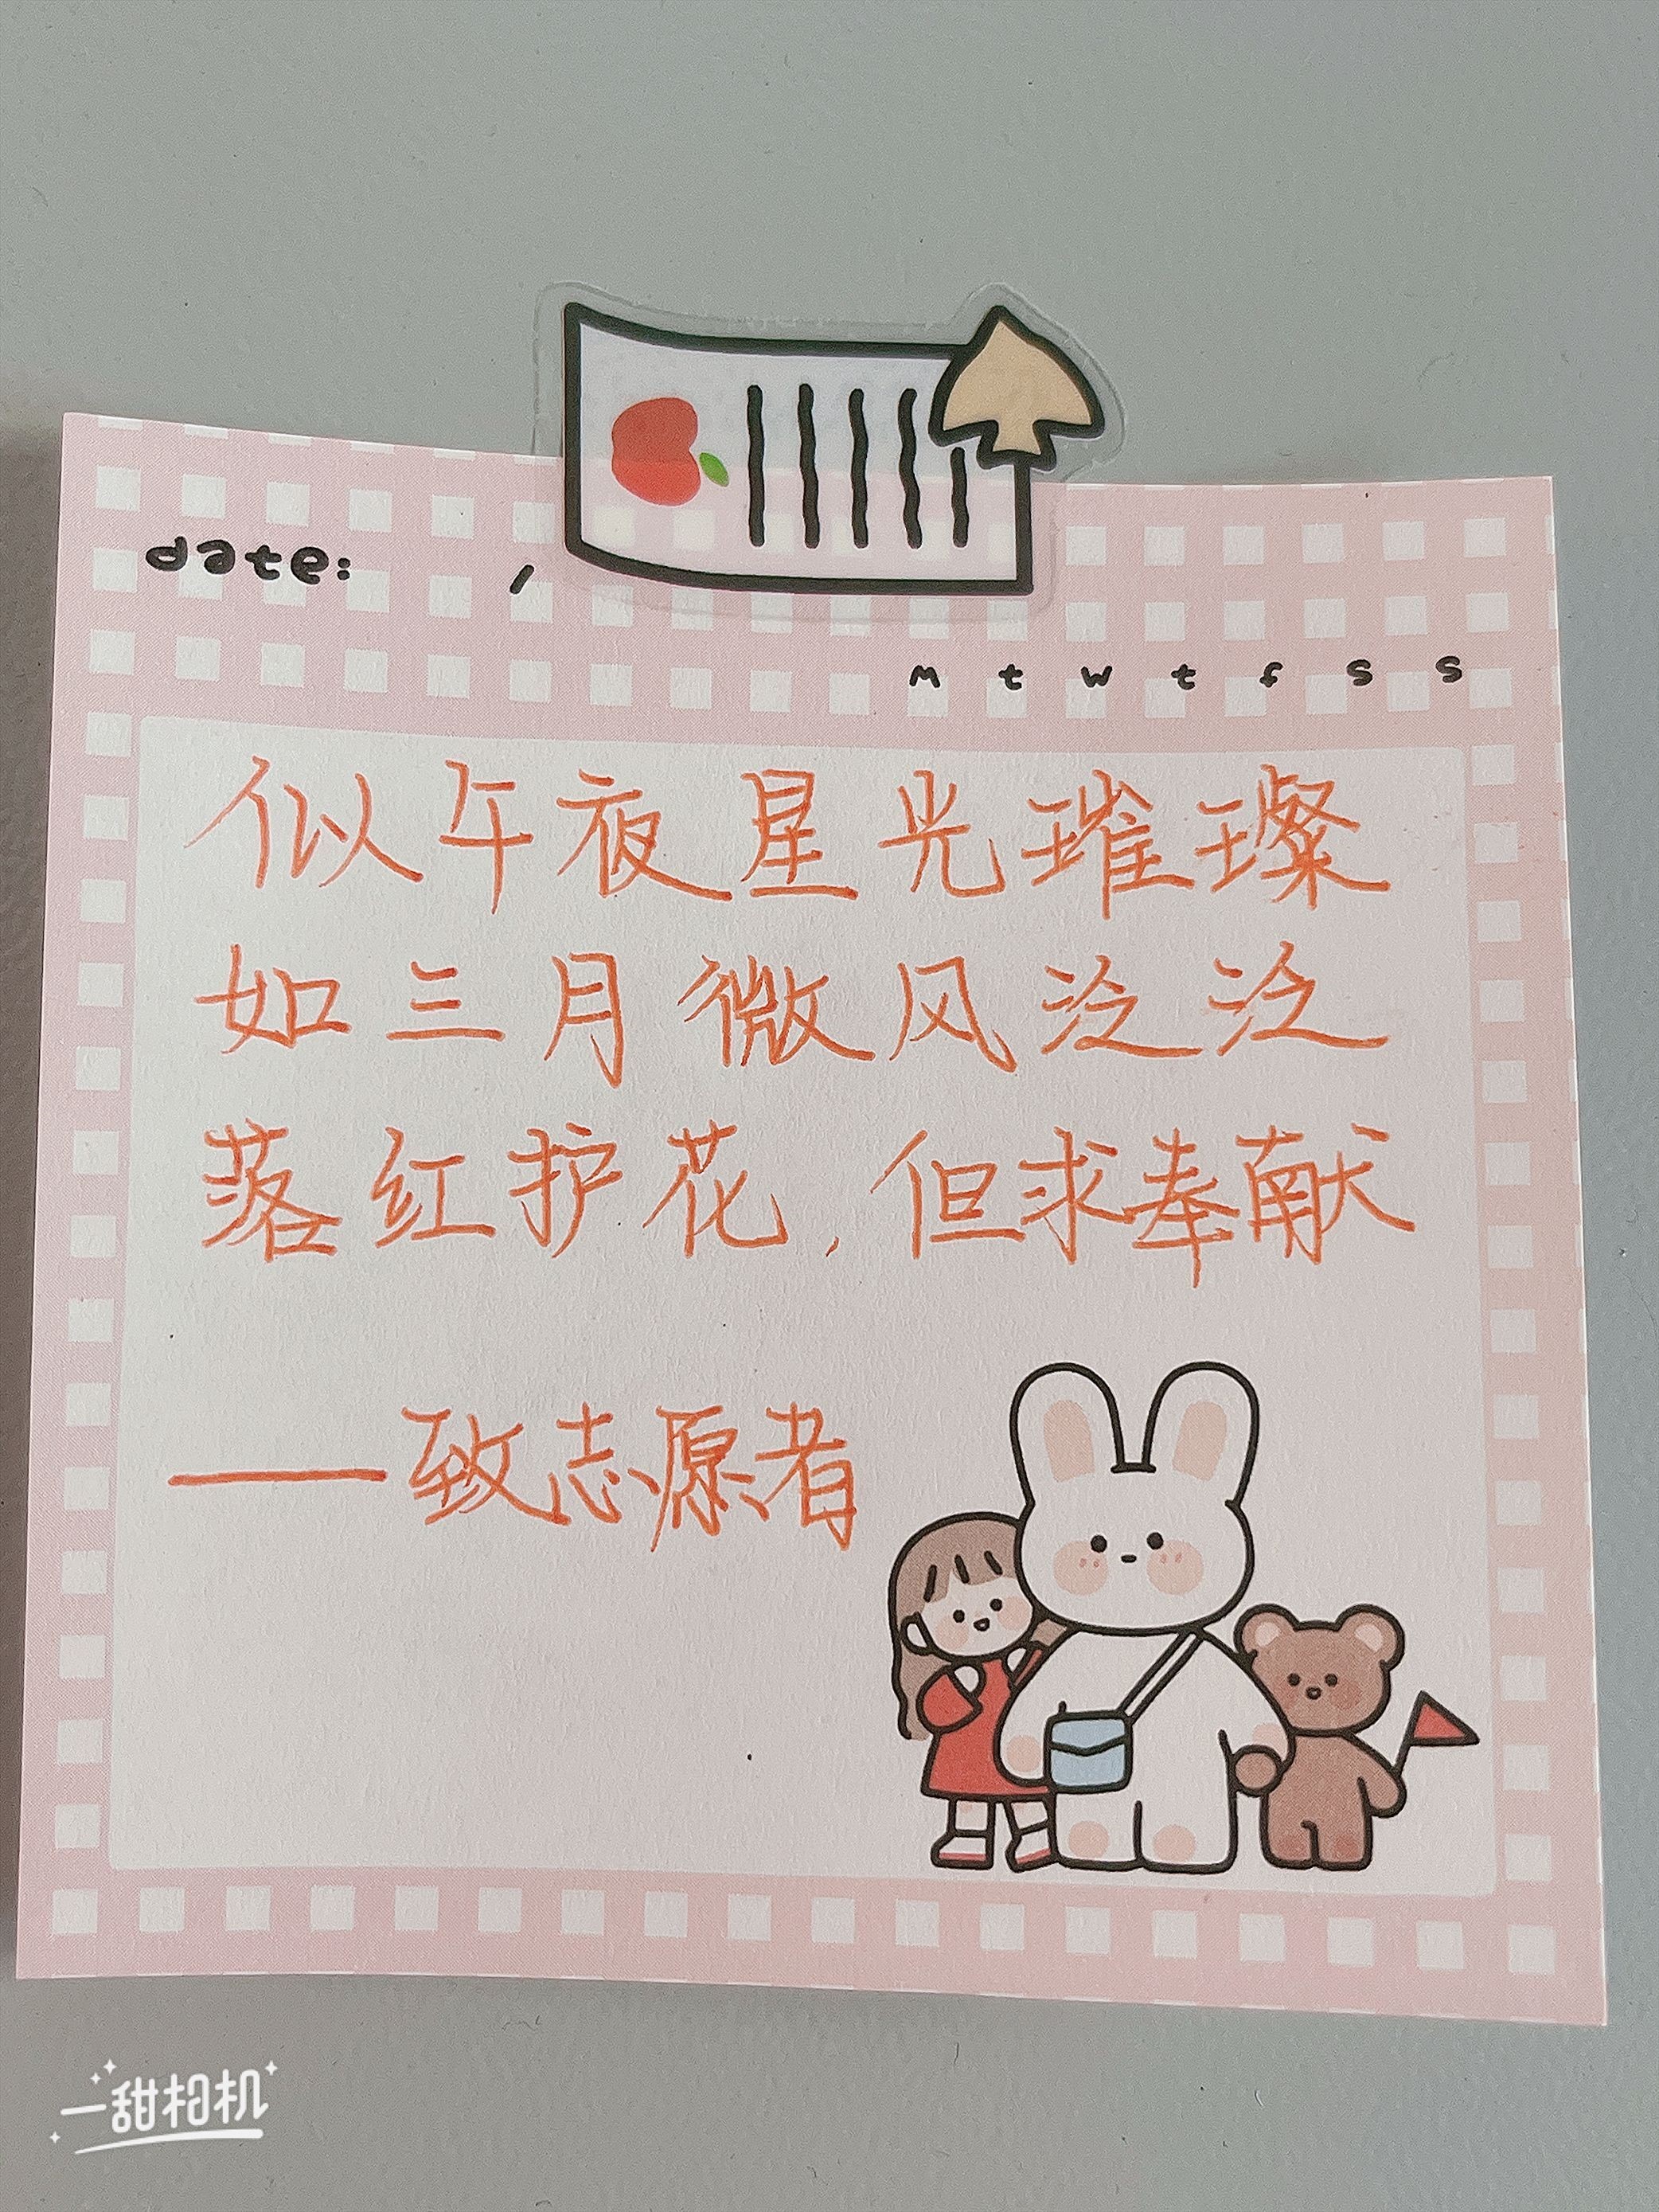 date: /
M t w t f s s
似午夜星光璀璨
如三月微风泛泛
落红护花，但求奉献
——致志愿者
一甜相机